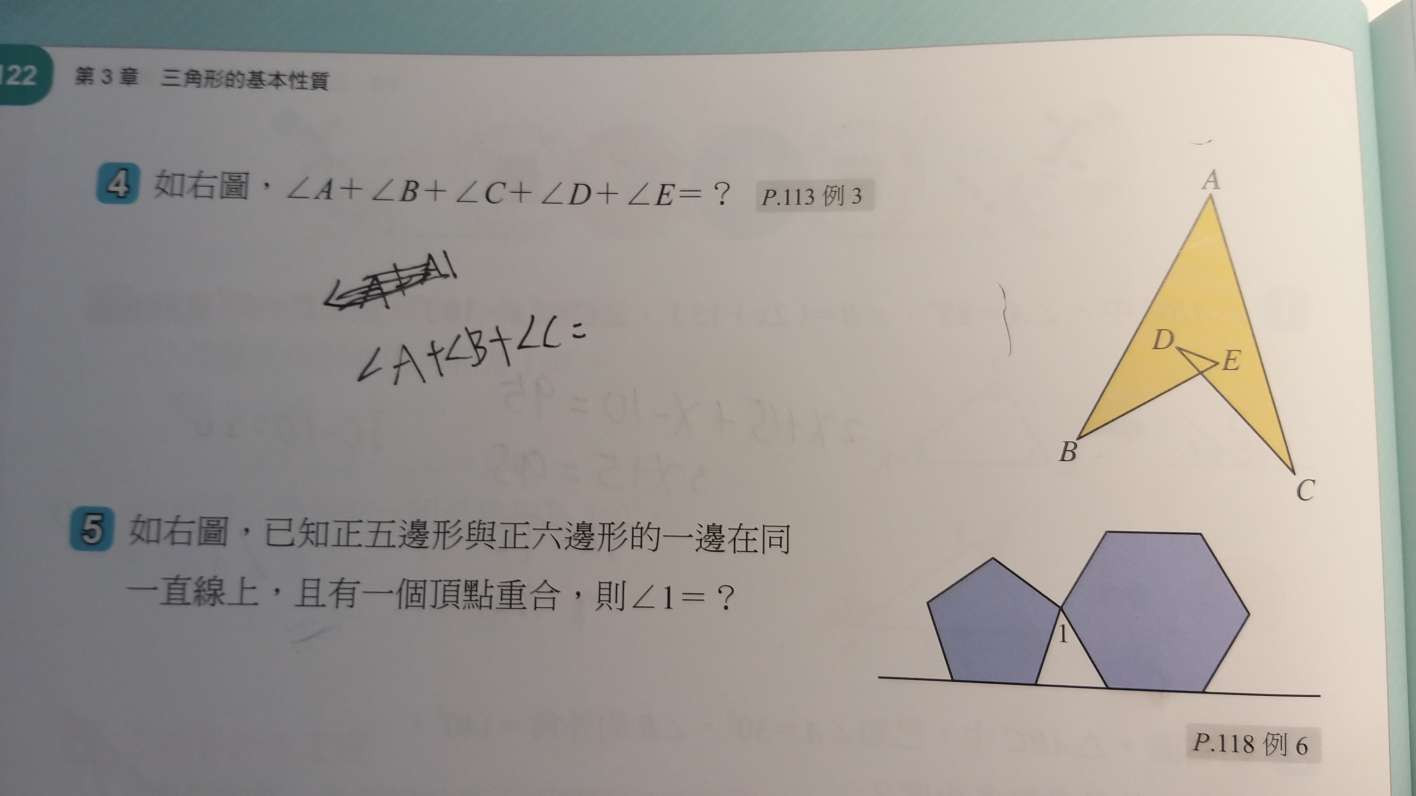 122 第 3 章 三角形的基本性質
4 如右圖，∠A＋∠B＋∠C＋∠D＋∠E＝？ P.113 例 3
A
∠A+∠B+∠C=
D
E
B
C
5 如右圖，已知正五邊形與正六邊形的一邊在同
一直線上，且有一個頂點重合，則∠1＝？
1
P.118 例 6